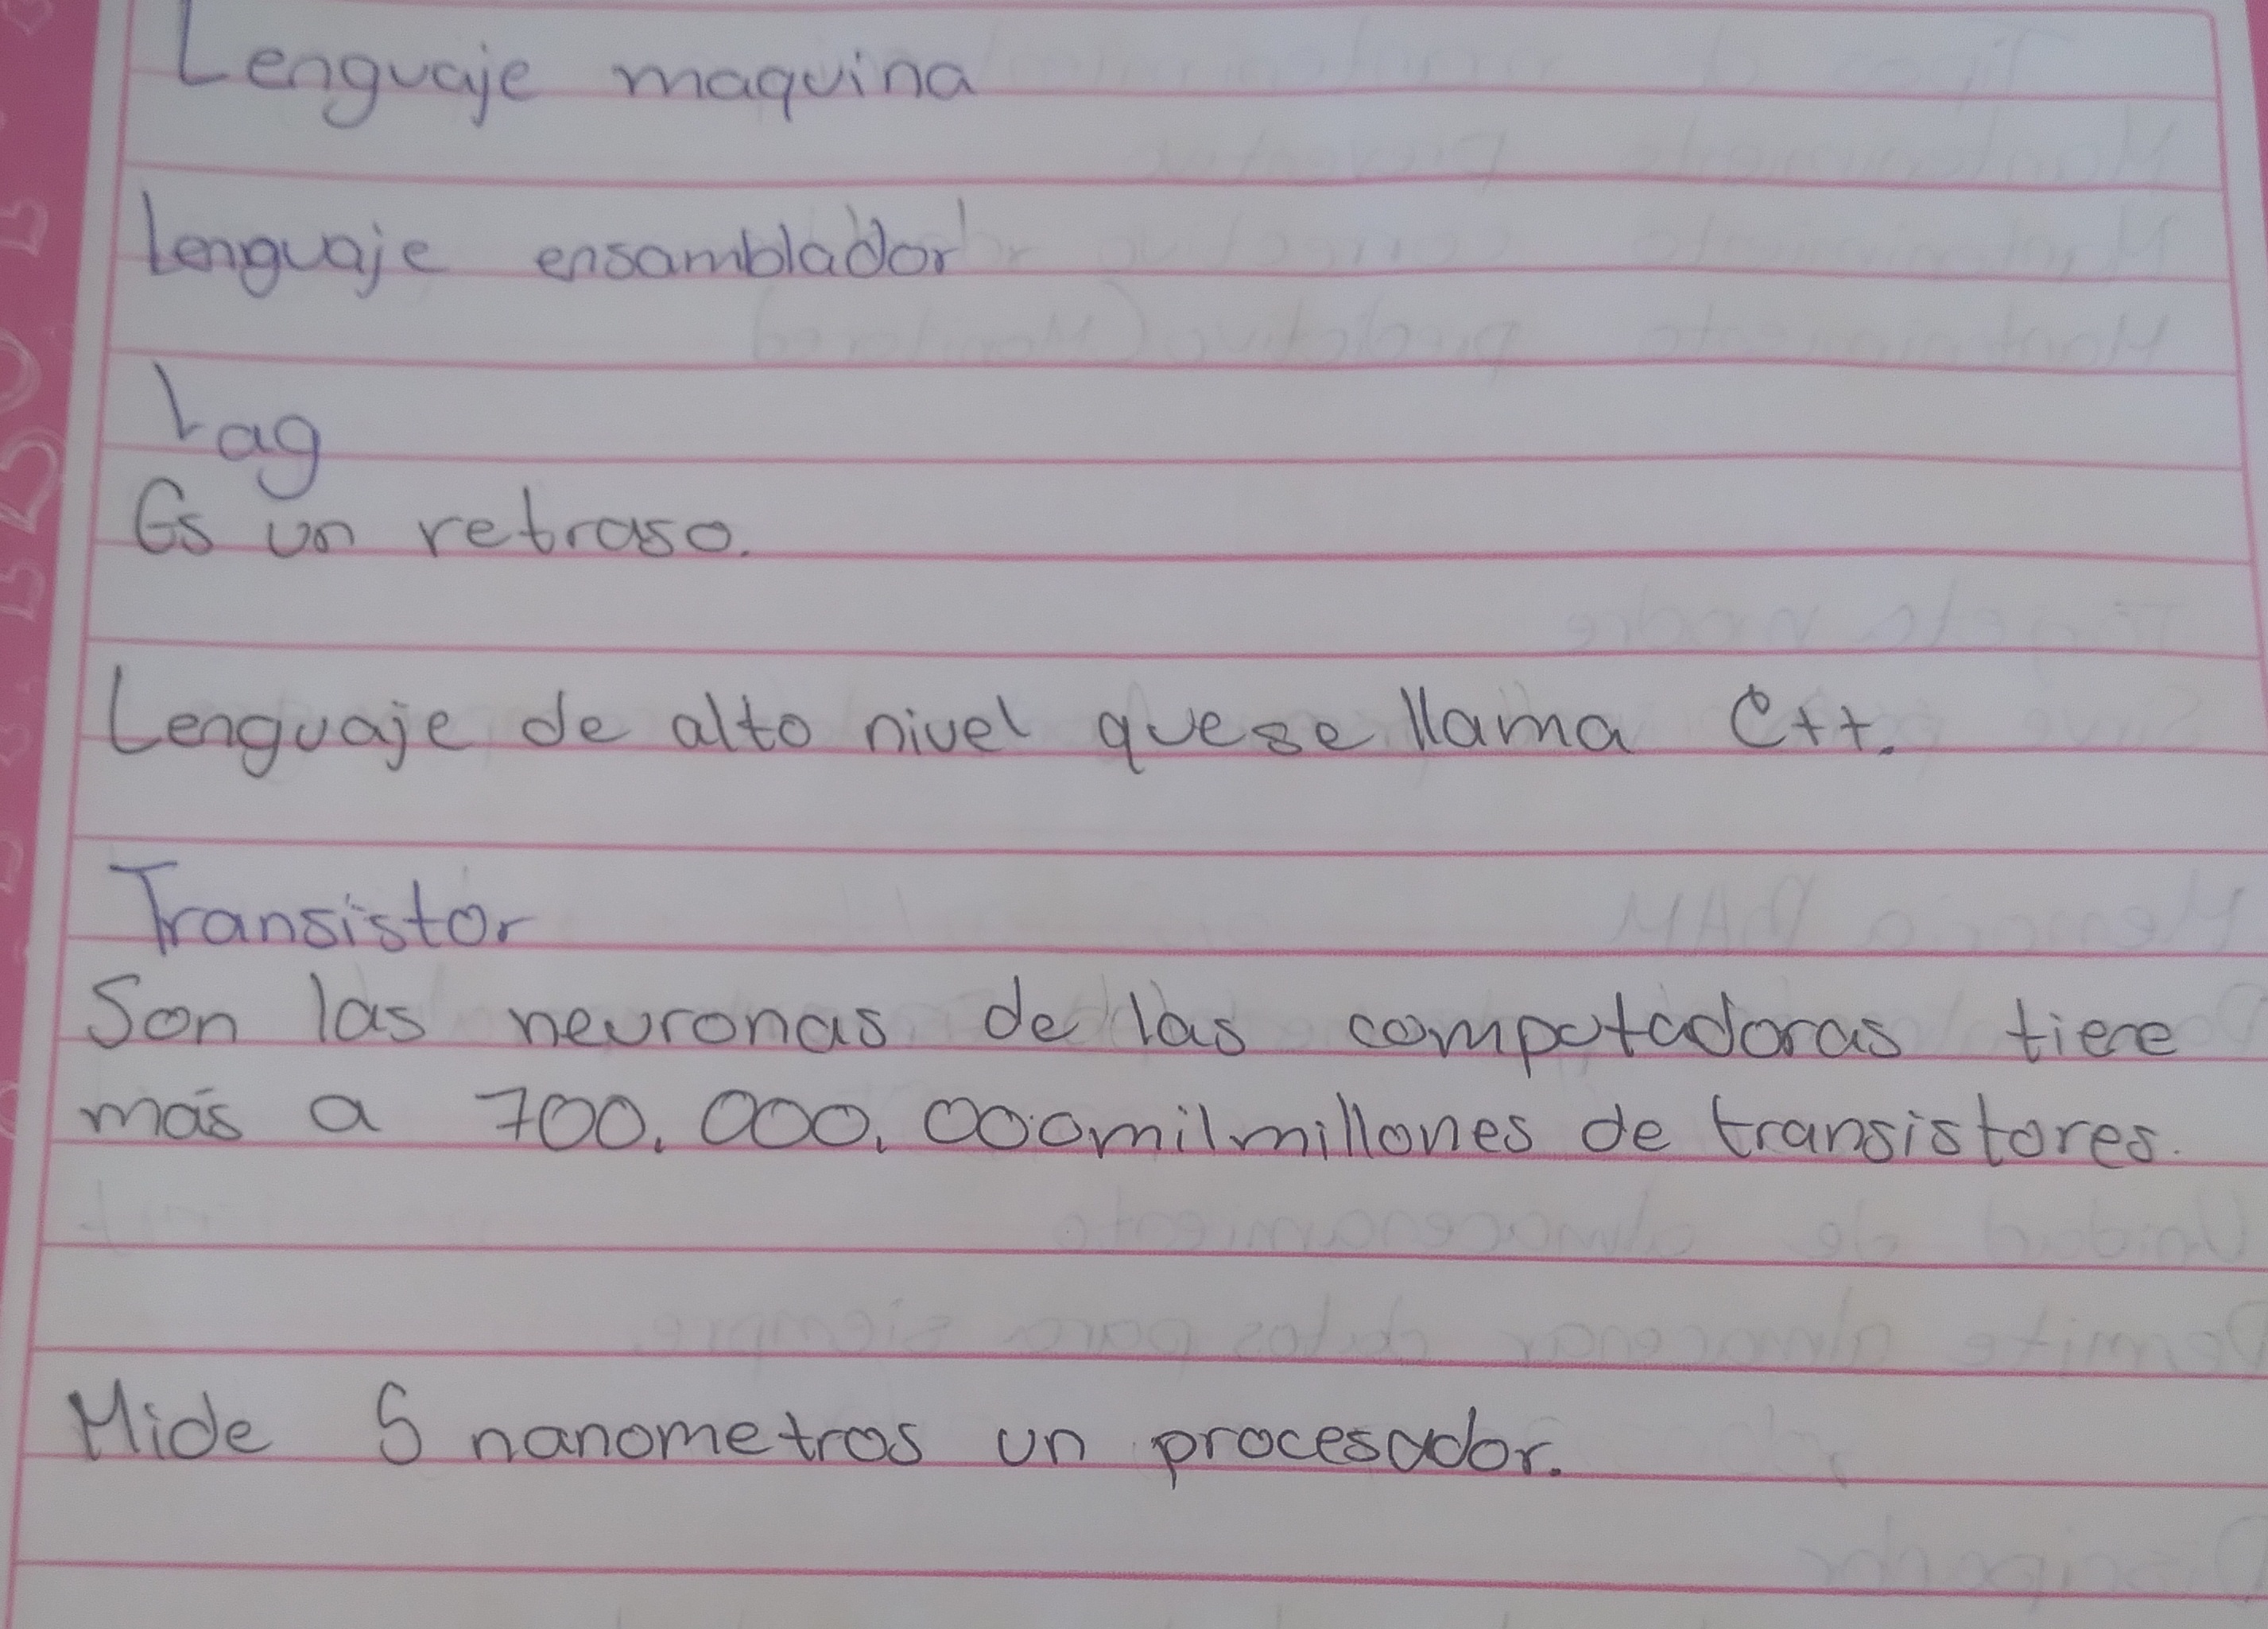 Lenguaje maquina
Lenguaje ensamblador
Lag
Es un retraso.
Lenguaje de alto nivel que se llama C++.
Transistor
Son las neuronas de las computadoras tiene
más a 700.000.000milmillones de transistores.
Mide 5 nanometros un procesador.